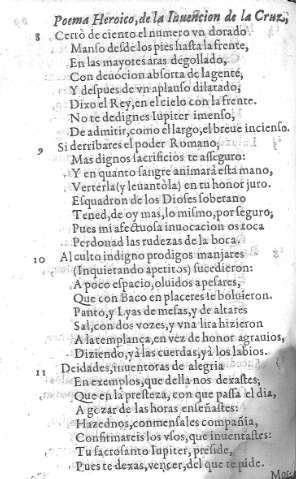 Poema Heroico, de la Inuencion de la Cruz,
8 Cerrò de ciento el numero vn dorado
Manso desde los pies hasta la frente,
En las mayores aras degollado,
Con deuocion absorta de la gente,
Y despues de vn aplauso dilatado,
Dixo el Rey, en el cielo con la frente.
No te dedignes Iupiter imenso,
De admitir, como el largo, el breue incienso.
9 Si derribares el poder Romano,
Mas dignos sacrificios te asseguro:
Y en quanto sangre animarà esta mano,
Verterla (y leuantòla) en tu honor juro.
Esquadron de los Dioses soberano
Tened, de oy mas, lo mismo, por seguro,
Pues mi afectuosa inuocacion os toca
Perdonad las rudezas de la boca.
10 Al culto indigno prodigos manjares
(Inquietando apetitos) sucedieron:
A poco espacio, oluidos a pesares,
Que con Baco en placeres le boluieron.
Panto, y Lyas de mesas, y de altares
Sal, con dos vozes, y vna lira hizieron
A la templança, en vez de honor agrauios,
Diziendo, yà las cuerdas, yà los labios.
11 Deidades, inuentoras de alegria
En exemplos, que della nos dexastes,
Que en la presteza, con que passa el dia,
A gozar de las horas enseñastes:
Hazednos, conmensales compañia,
Confirmareis los vsos, que inuentastes:
Tu sacrosanto Iupiter, preside,
Pues te dexas, vencer, del que te pide.